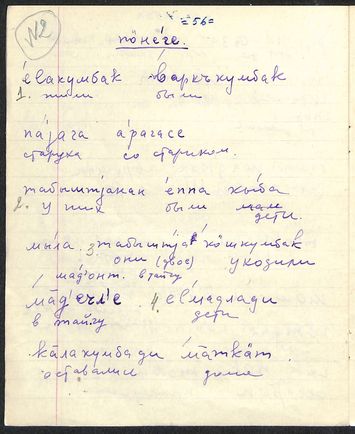 N2
= 56 =
пöнéге.
éвакумбак вáркъкумбак
1. жили были
пáјага áрагасе
старуха со стариком.
табыштјáнан éппа кы́ба
2. у них были дети.
мы́ла. 3. табыштја́ кöшкумбак
они (двое) уходили
мад'онт. в тайгу
мāд'ечл'е 4 е́л'мадла́ди
в тайгу дети
кāлакумбади мāткāт.
оставались дома